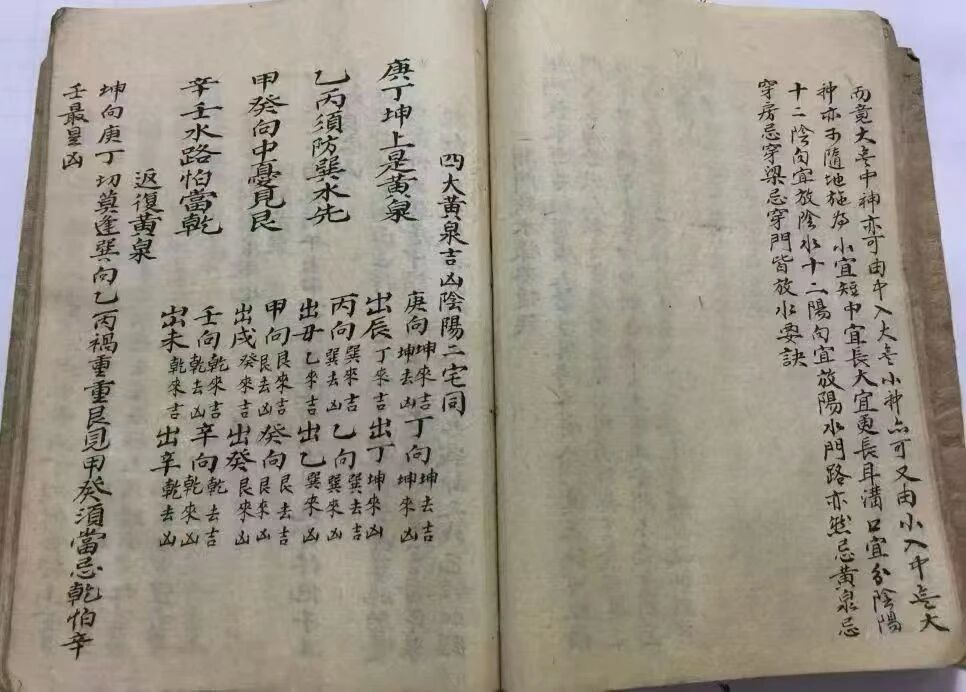 而竟大㐫中神亦可由中入大㐫小神亦可又由小入中㐫大
神亦不隨地施為小宜短中宜長大宜更長耳溝口宜分陰陽
十二陰向宜放陰水十二陽向宜放陽水門路亦然忌黃泉忌
穿房忌穿梁忌穿門皆放水要訣
四大黃泉吉凶陰陽二宅同
庚丁坤上是黃泉
庚向坤來吉坤去凶丁向坤去吉坤來凶
出辰丁來吉出丁坤來凶
乙丙須防巽水先
丙向巽來吉巽去凶乙向巽去吉巽來凶
出丑乙來吉出乙巽來凶
甲癸向中憂見艮
甲向艮來吉艮去凶癸向艮去吉艮來凶
出戌癸來吉出癸艮來凶
辛壬水路怕當乾
壬向乾來吉乾去凶辛向乾去吉乾來凶
出未乾來吉出辛乾去凶
返復黃泉
坤向庚丁切莫逢巽向乙丙禍重重艮見甲癸須當忌乾怕辛
壬最是凶